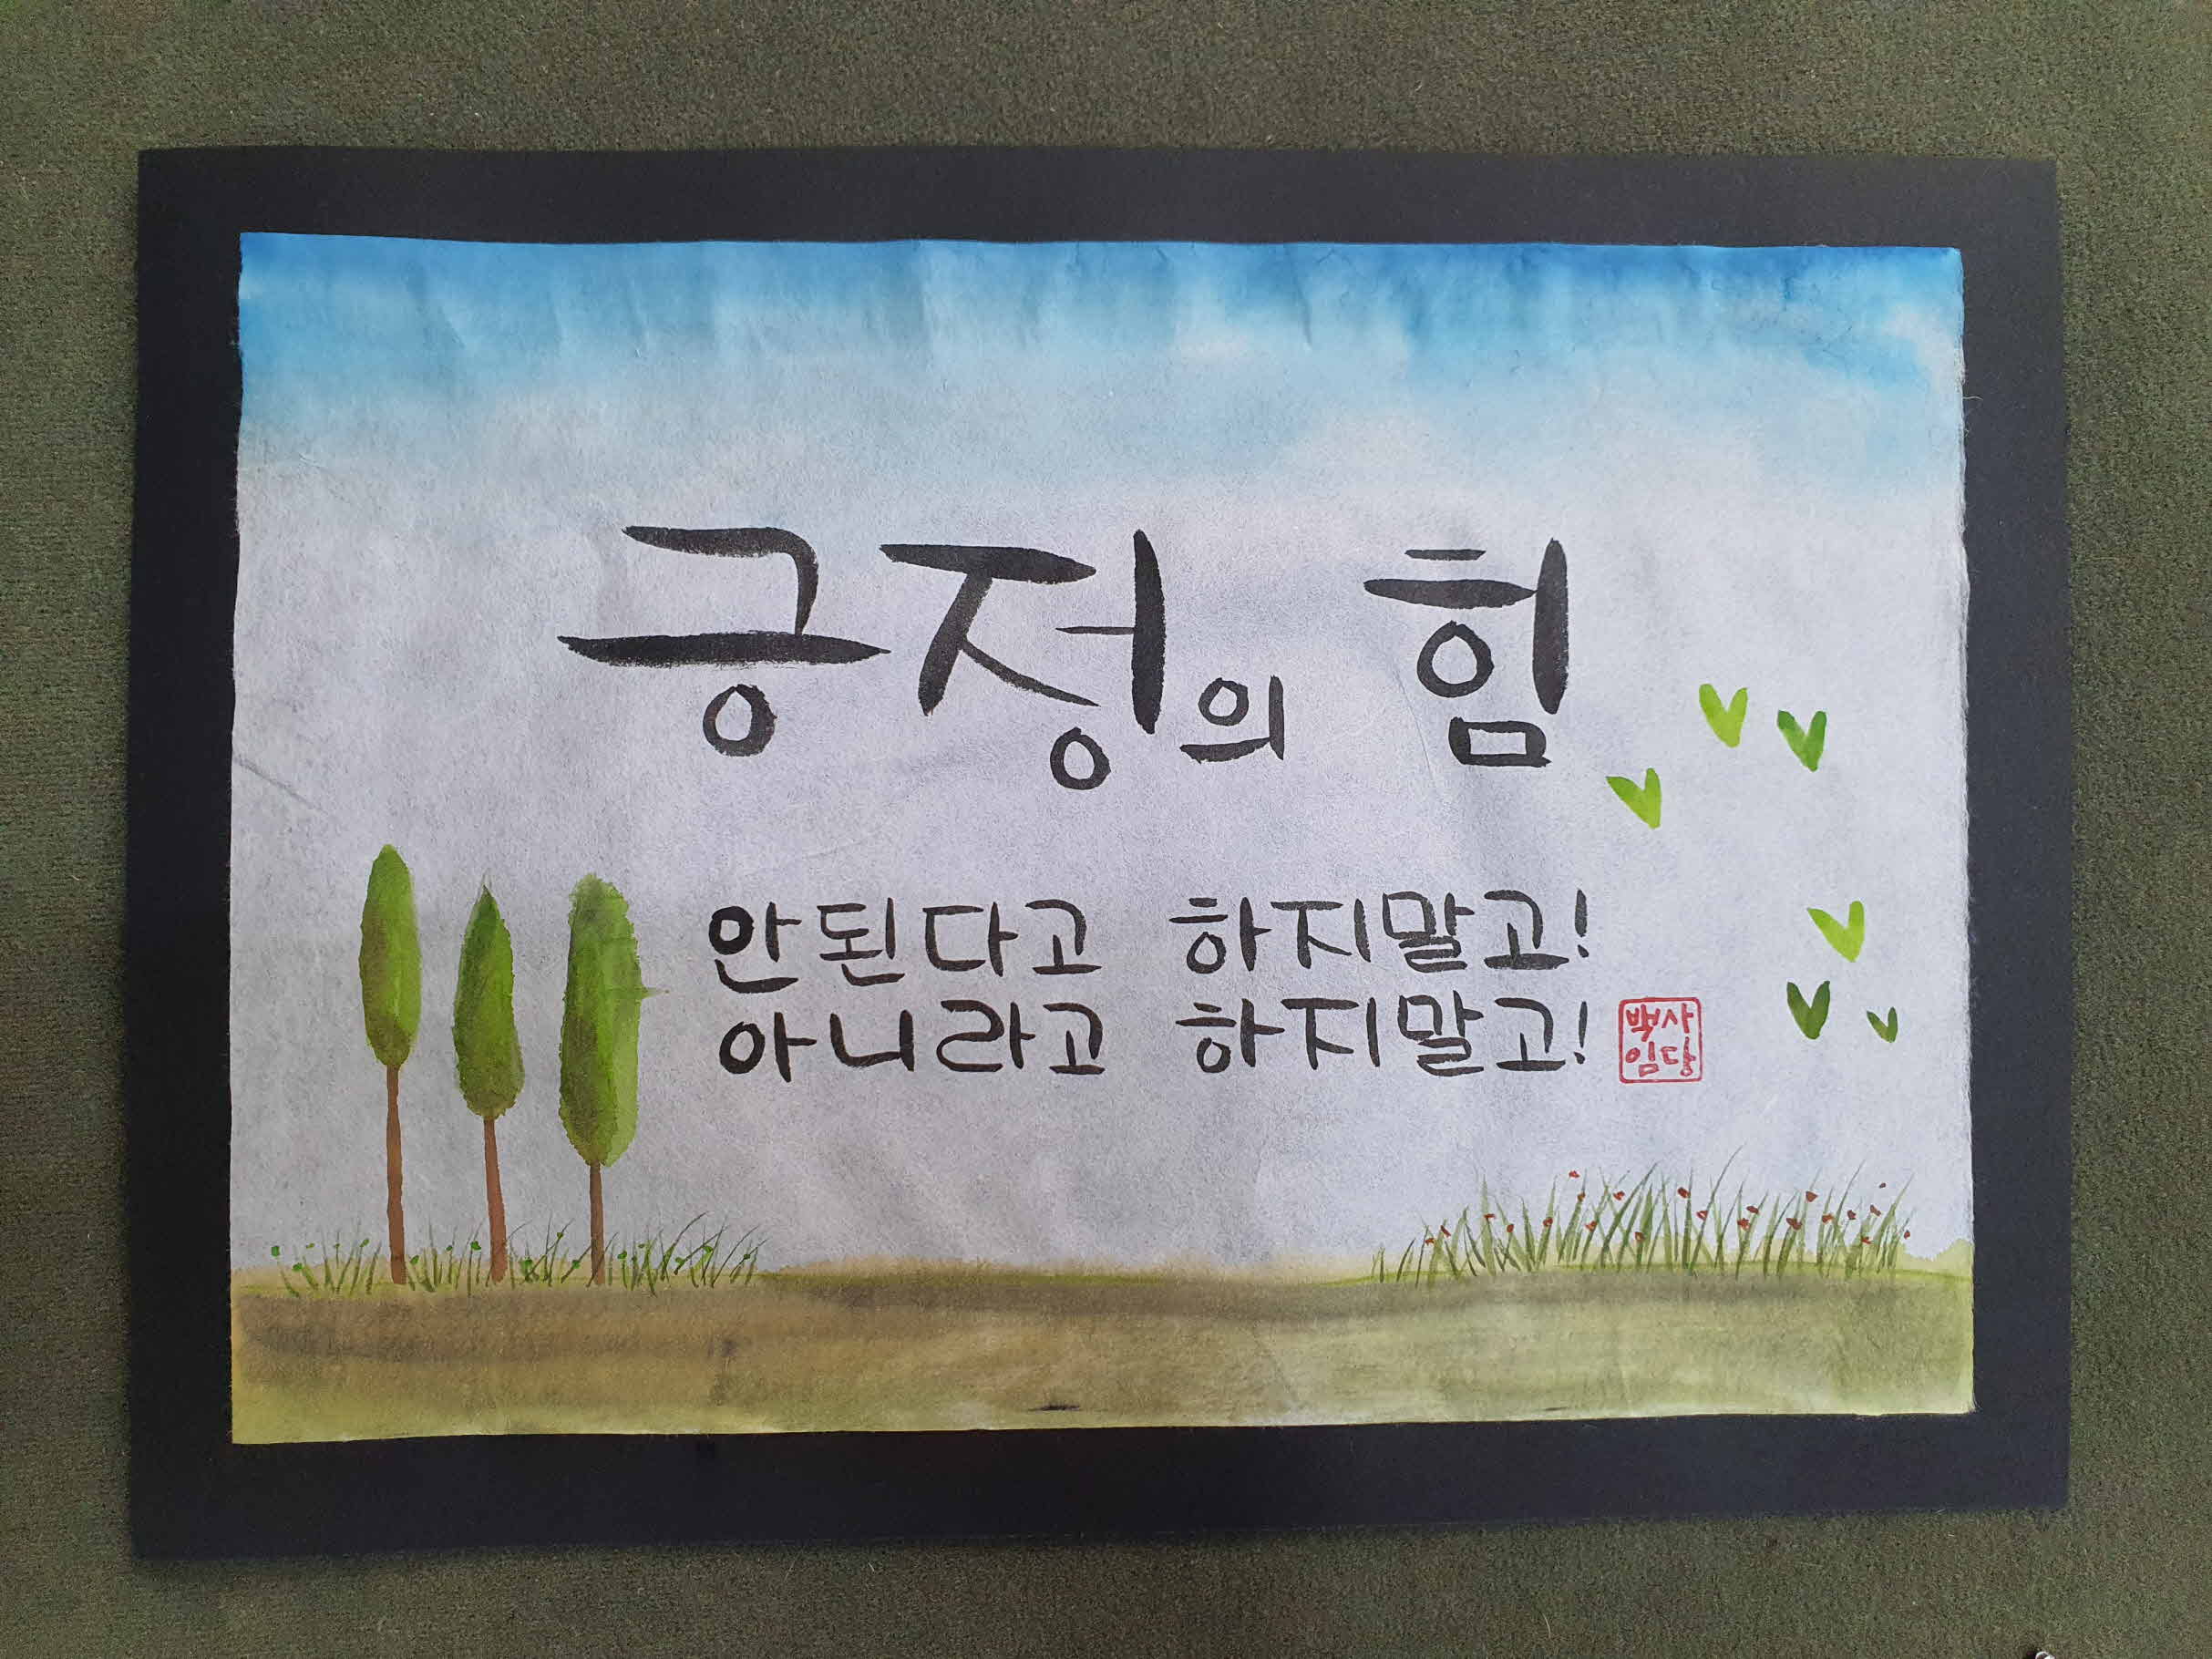 긍정의 힘
안된다고 하지말고!
아니라고 하지말고!
백사
임당